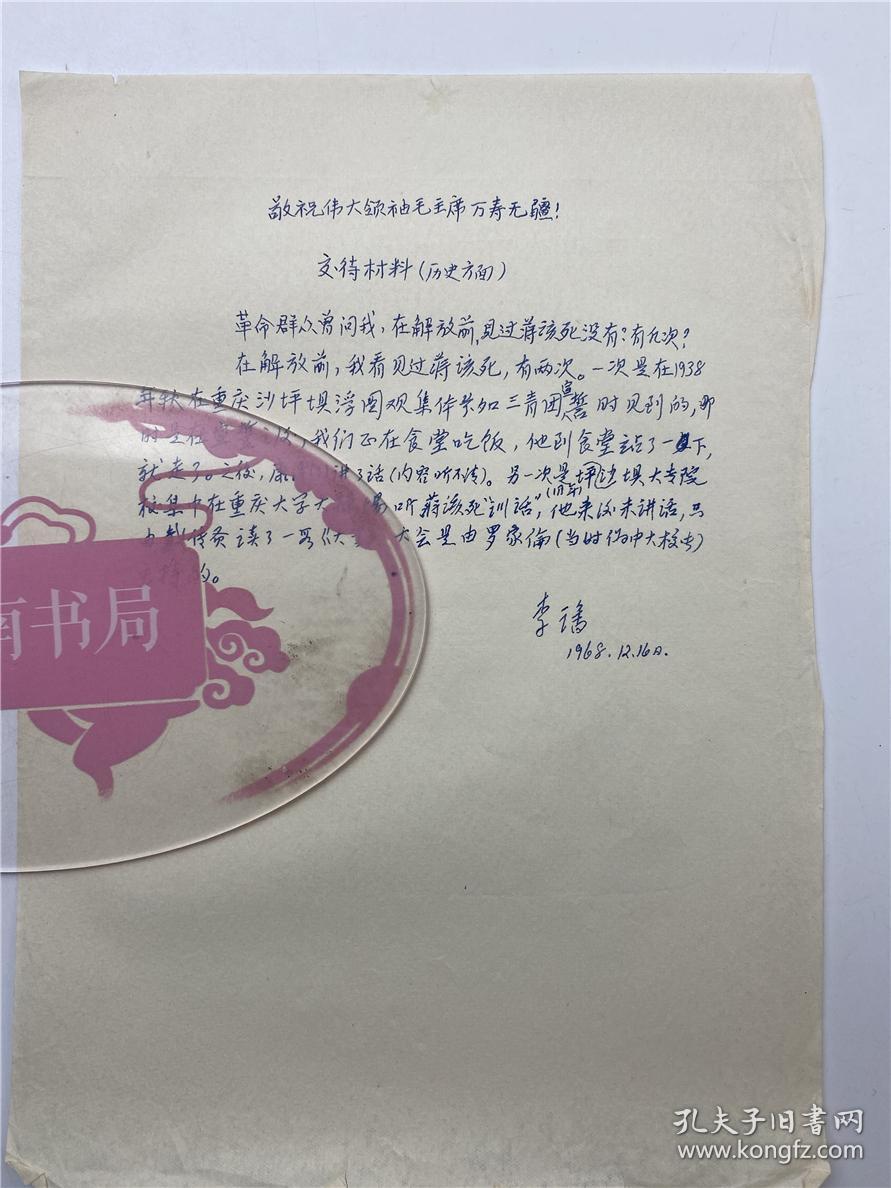 敬祝伟大领袖毛主席万寿无疆!
交待材料(历史方面)
革命群众曾问我,在解放前,见过蒋该死没有?有几次?
在解放前,我看见过蒋该死,有两次。一次是在1938
年秋在重庆沙坪坝浮图观集体参加三青团宣誓时见到的,那
时是在宣誓后,我们正在食堂吃饭,他到食堂去了一下,
就走了。之后,讲了话(内容听不清)。另一次是坪沙坝大专院
校集中在重庆大学大 场听蒋该死(旧军)"训话",他来后未讲话,只
读了一 大会是由罗家伦(当时伪中大校长)
主持的。
李
1968.12.16日.
南书局
孔夫子旧书网
www.kongfz.com